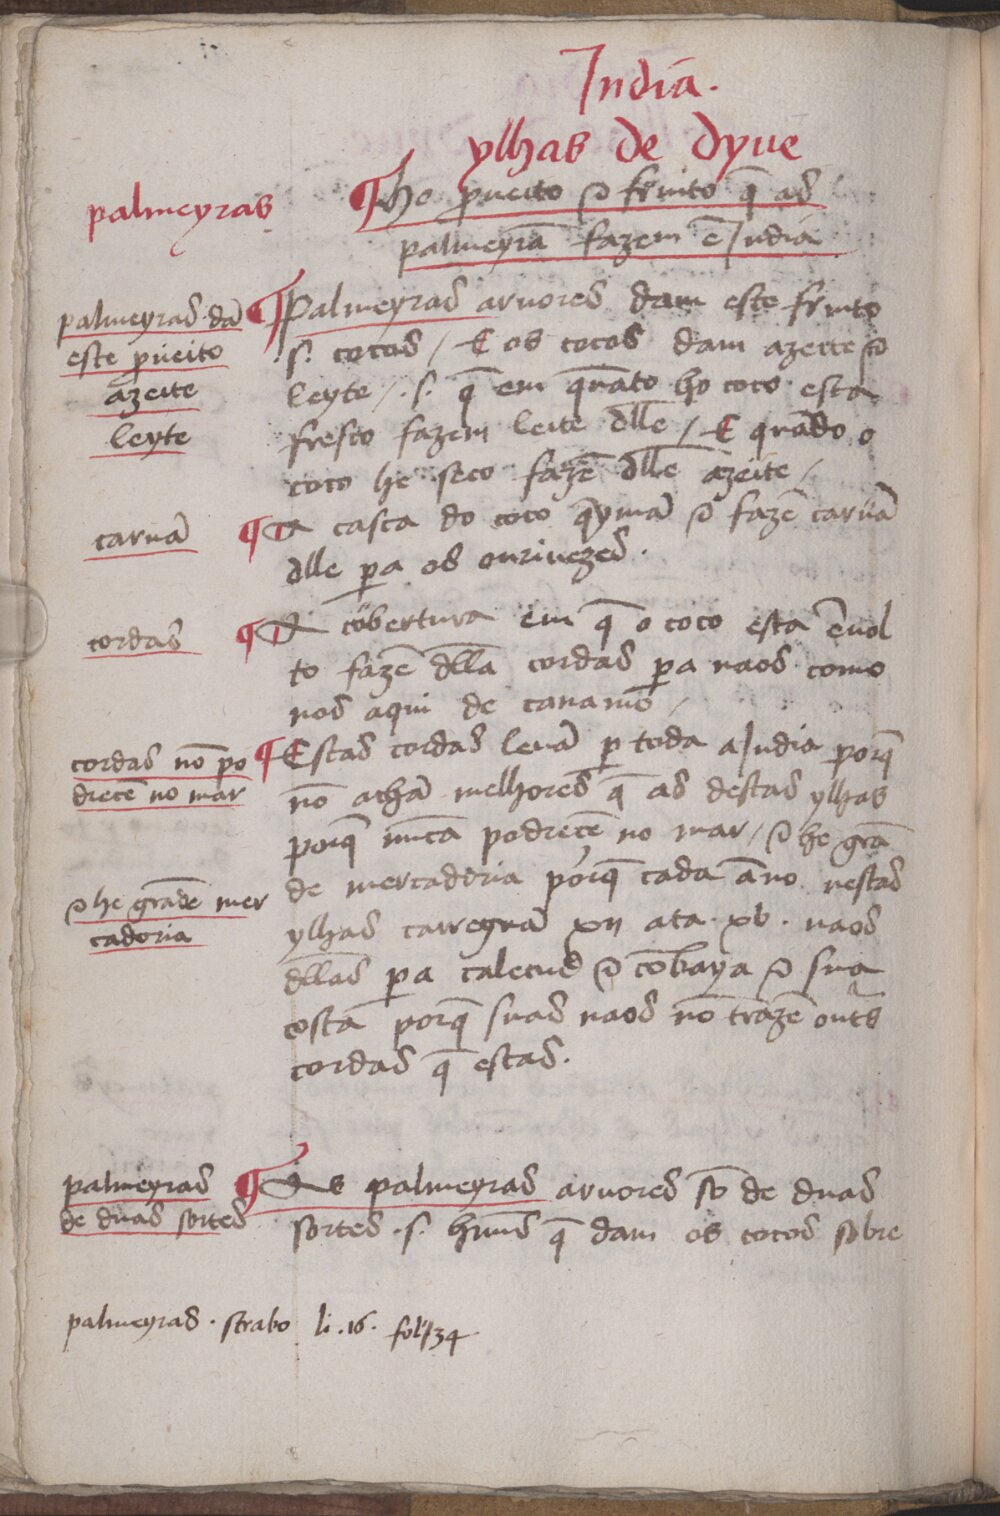 India.
ylhas de dyue
palmeyras
¶ ho ꝓueito ⁊ fruito q̃ as
palmeyrã fazem ẽ India
palmeyras dã
este ꝓueito
azeite
leyte
¶ Palmeyras aruores dam este fruito
.s. cocos / E os cocos dam azeite ⁊
leyte /.s. q̃ em quãto ho coco esta
fresco fazem leite dll̃e / E quãdo o
coco he seco fazẽ dll̃e azeite /
caruã
¶ A casca do coco q̃ymã ⁊ fazẽ caruã
dlle ꝑa os ouriuezes.
cordas
¶ A cobertura em q̃ o coco esta ẽuol
to fazẽ dll̃a cordas ꝑa naos como
nos aqui de canamo /
cordas nõ po
drecẽ no mar
¶ Estas cordas leuã ꝑ toda a India porq̃
nõ achã melhores q̃ as destas ylhas
porq̃ nũca podrecẽ no mar / ⁊ he grã
de mercadoria porq̃ cada ãno nestas
⁊ he grãde mer
cadoria
ylhas carreguã xij ata .xb. naos
dll̃as ꝑa calecud ⁊ cõbaya ⁊ sua
costa porq̃ suas naos nõ trazẽ outᵃs
cordas q̃ estas.
palmeyras
de duas sortes
¶ As palmeyras aruores sõ de duas
sortes .s. hũas q̃ dam os cocos sobre
palmeyras . strabo li .16. fol 734